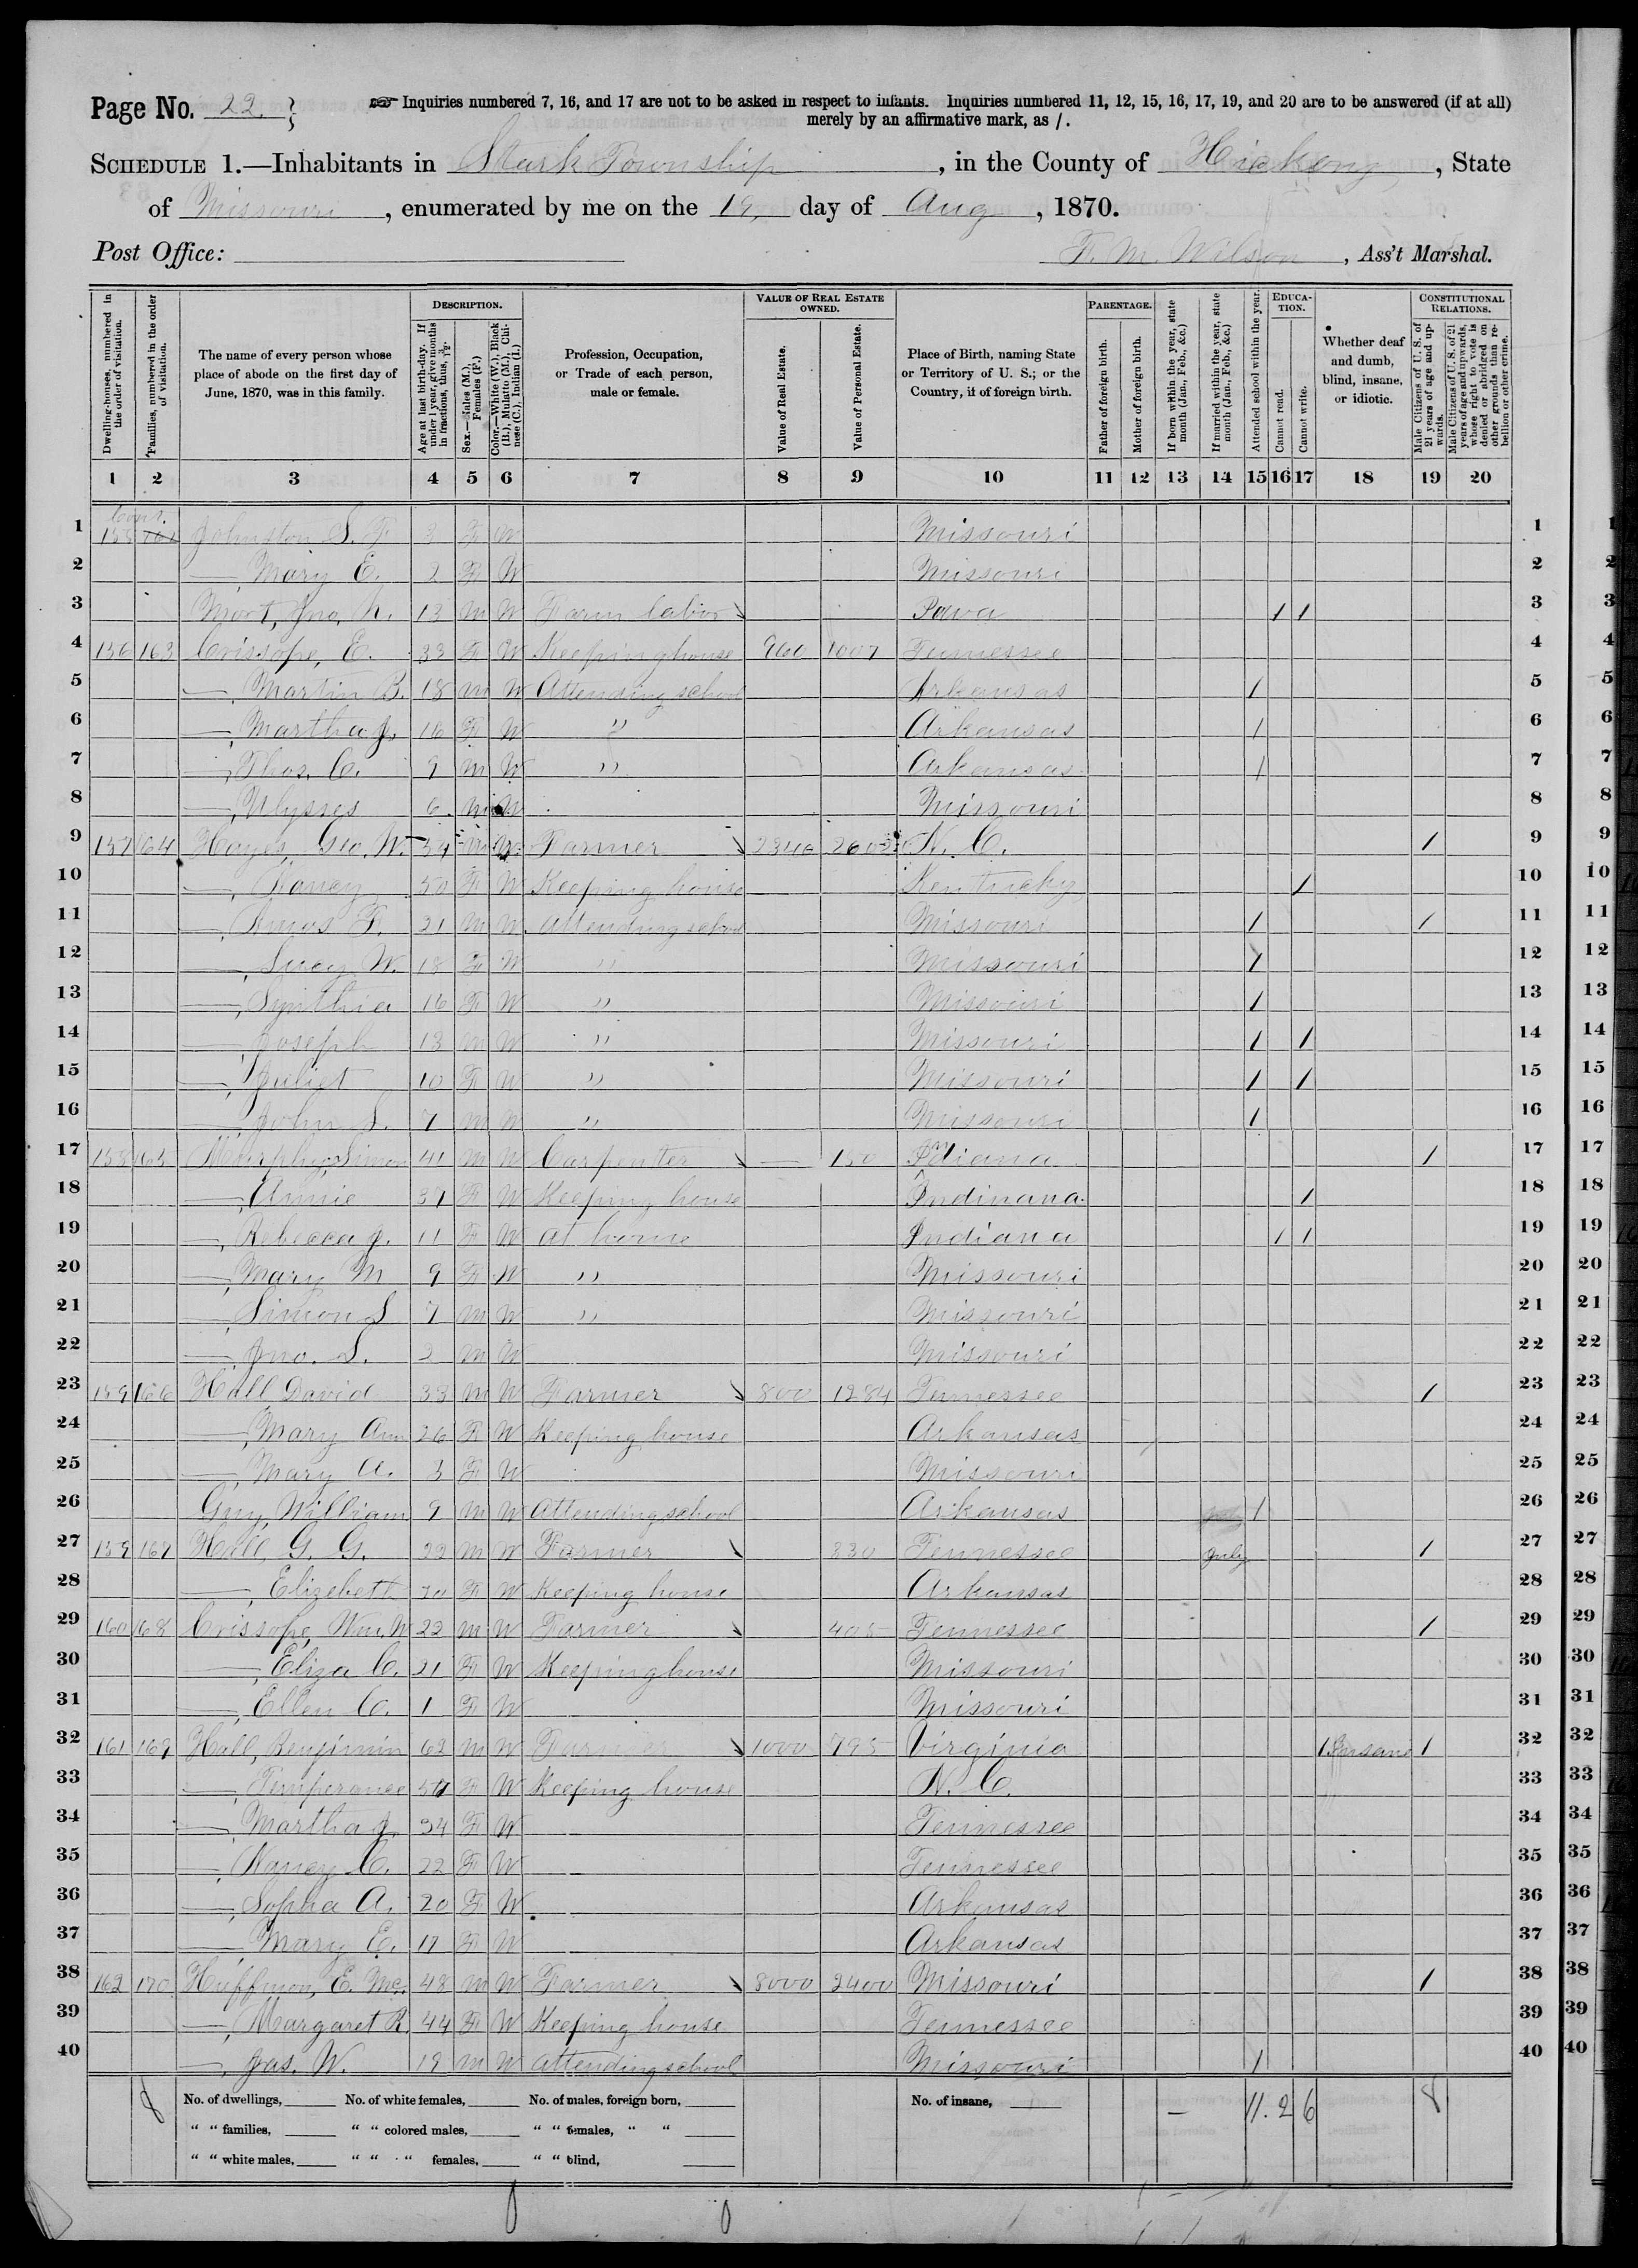 Page No. 22.
Inquiries numbered 7, 16, and 17 are not to be asked in respect to infants. Inquiries numbered 11, 12, 15, 16, 17, 19, and 20 are to be answered (if at all)
merely by an affirmative mark, as /.
SCHEDULE 1.—Inhabitants in Stark Township, in the County of Hickory, State
of Missouri, enumerated by me on the 19 day of Aug, 1870.
Post Office:
F. M. Wilson, Ass't Marshal.
Dwelling-houses, numbered in the order of visitation.
Families, numbered in the order of visitation.
The name of every person whose place of abode on the first day of June, 1870, was in this family.
DESCRIPTION.
Age at last birth-day. If under 1 year, give months in fractions, thus, 3/12.
Sex.—Males (M.), Females (F.)
Color.—White (W.), Black (B.), Mulatto (M.), Chinese (C.), Indian (I.)
Profession, Occupation, or Trade of each person, male or female.
VALUE OF REAL ESTATE OWNED.
Value of Real Estate.
Value of Personal Estate.
Place of Birth, naming State or Territory of U. S.; or the Country, if of foreign birth.
PARENTAGE.
Father of foreign birth.
Mother of foreign birth.
If born within the year, state month (Jan., Feb., &c.)
If married within the year, state month (Jan., Feb., &c.)
Attended school within the year.
EDUCATION.
Cannot read.
Cannot write.
Whether deaf and dumb, blind, insane, or idiotic.
CONSTITUTIONAL RELATIONS.
Male Citizens of U. S. of 21 years of age and upwards.
Male Citizens of U. S. of 21 years of age and upwards, whose right to vote is denied or abridged on other grounds than rebellion or other crime.
1 2 3 4 5 6 7 8 9 10 11 12 13 14 15 16 17 18 19 20
1 155 Johnston S. F. 3 F W Missouri 1
2 — Mary E. 2 F W Missouri 2
3 Mort, Jno. 13 M W Farm labor / / 3
4 156 163 E. 33 F W Keeping house 960 1007 Tennessee 4
5 —, Martin B. 18 M W Attending school Arkansas / 5
6 —, Martha J. 16 F W " Arkansas / 6
7 —, Thos. C. 9 M W " Arkansas / 7
8 —, Ulysses 6 M W Missouri 8
9 157 164 Hayes Geo. W. 54 M W Farmer 2340 N. C. / 9
10 —, Nancy 50 F W Keeping house Kentucky / 10
11 —, Amos F. 21 M W Attending school Missouri / / 11
12 —, Lucy W. 18 F W " Missouri / 12
13 —, Synthia 16 F W " Missouri / 13
14 —, Joseph 13 M W " Missouri / / 14
15 —, Juliet 10 F W " Missouri / / 15
16 —, John S. 7 M W " Missouri / 16
17 158 165 Murphy, Simon 41 M W Carpenter — 150 Indiana / 17
18 —, Annie 37 F W Keeping house Indinana / 18
19 —, Rebecca J. 11 F W At home Indiana / / 19
20 —, Mary M 9 F W " Missouri 20
21 —, Simon S 7 M W " Missouri 21
22 —, Jno. S. 2 M W Missouri 22
23 159 166 Hall David 38 M W Farmer 800 1284 Tennessee / 23
24 —, Mary Ann 26 F W Keeping house Arkansas 24
25 —, Mary A. 3 F W Missouri 25
26 Guy, William 9 M W Attending school Arkansas / 26
27 159 167 Hall, G. G. 22 M W Farmer 830 Tennessee July / 27
28 —, Elizebeth 20 F W Keeping house Arkansas 28
29 160 168 Wm. 22 M W Farmer 405 Tennessee / 29
30 —, Eliza C. 21 F W Keeping house Missouri 30
31 —, Ellen C. 1 F W Missouri 31
32 161 169 Hall, Benjimin 62 M W Farmer 1000 795 Virginia / Insane / 32
33 —, Temperance F W Keeping house N. C. 33
34 —, Martha J. 34 F W Tennessee 34
35 —, Nancy C. 22 F W Tennessee 35
36 —, Sophia A. 20 F W Arkansas 36
37 —, Mary E. 17 F W Arkansas 37
38 162 170 Huffman, E. Mc. 48 M W Farmer 8000 2400 Missouri / 38
39 —, Margaret R. 44 F W Keeping house Tennessee 39
40 —, Jas. W. 19 M W Attending school Missouri / 40
8 No. of dwellings, No. of white females, No. of males, foreign born, No. of insane, — 11. 2 6 8
" " families, " " colored males, " " females, " "
" " white males, " " " females, " " blind,